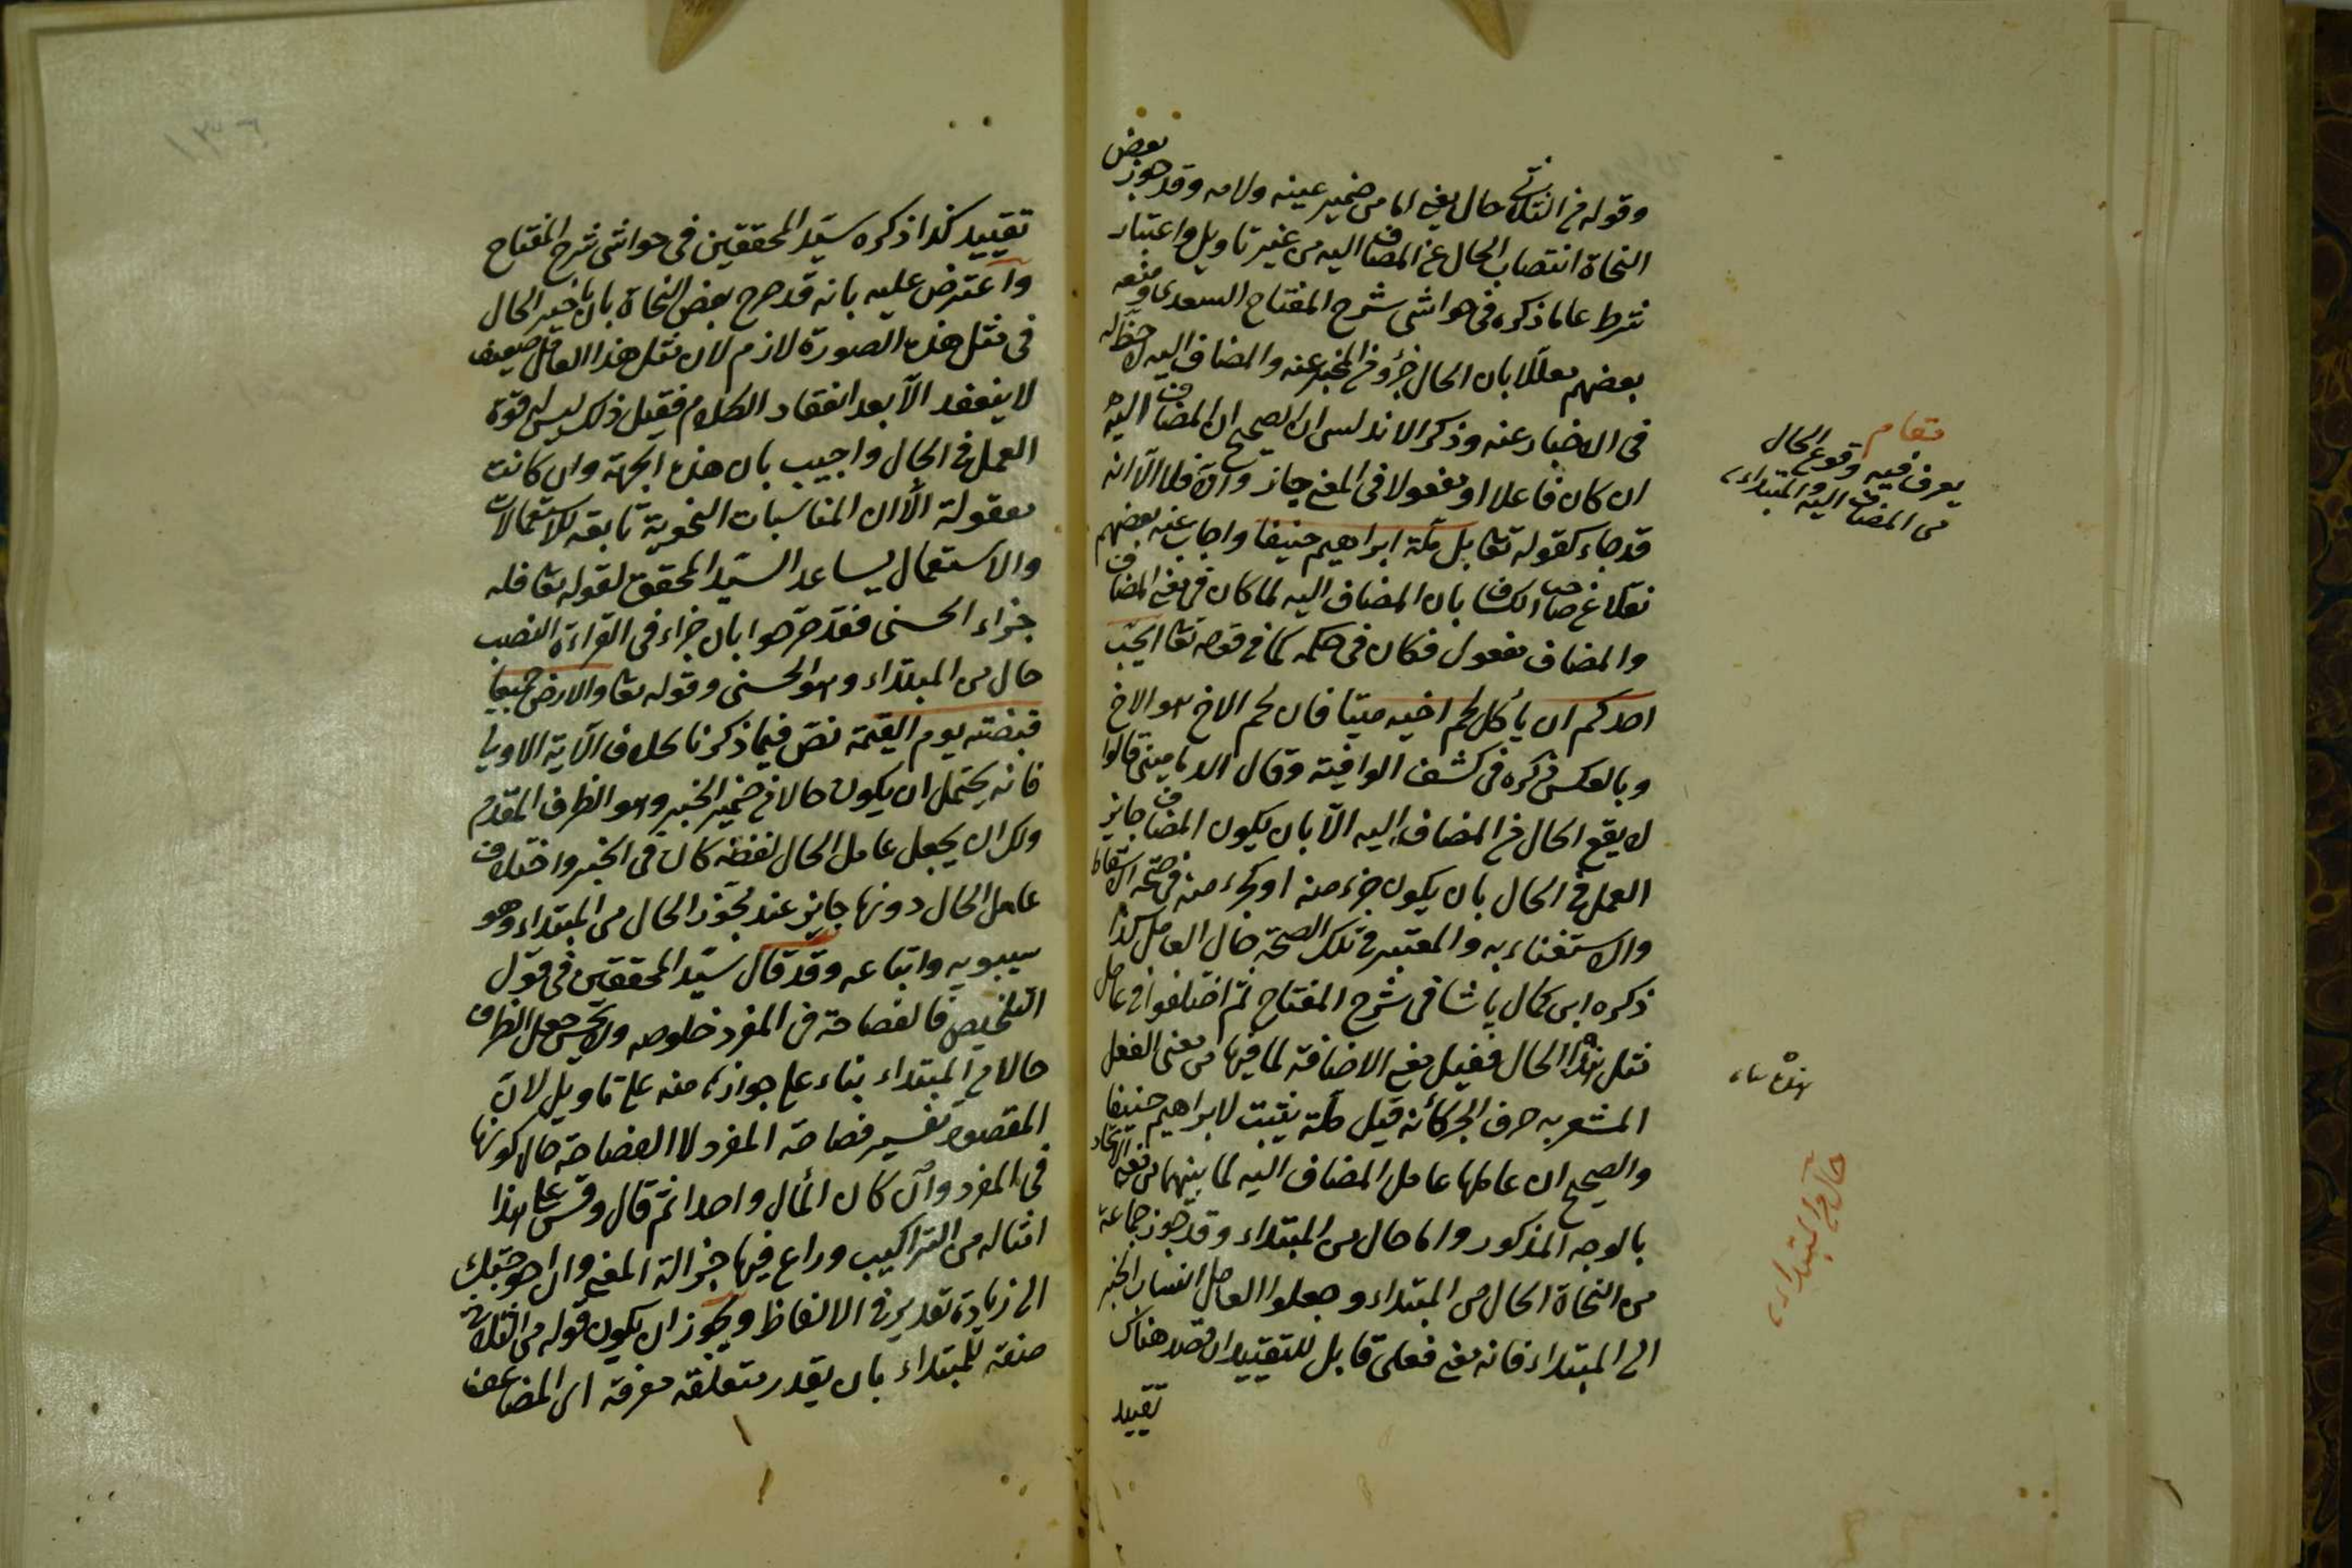 وقوله من الثلاثي حال يعني اما من ضمير عينه ولامه وقد جوز بعض
النحاة انتصاب الحال عن المضاف اليه من غير تاويل واعتبار
شرط على ما ذكره في حواشي شرح المفتاح السعدي ومنعه
بعضهم معللا بان الحال جزؤ من المخبر عنه والمضاف اليه لا حظ له
في الاخبار عنه وذكر الاندلسي ان الصحيح ان المضاف اليه
ان كان فاعلا او مفعولا في المعنى جاز والا فلا الا انه
قد جاء كقوله تعا بل ملة ابراهيم حنيفا واجاب عنه بعضهم
نقلا عن صاحب الكشاف بان المضاف اليه لما كان في معنى المضاف
والمضاف مفعول فكان في حكمه كما في قوله تعا ايحب
احدكم ان يأكل لحم اخيه ميتا فان لحم الاخ هو الاخ
وبالعكس ذكره في كشف الوافية وقال الدمامينى قالوا
لا يقع الحال من المضاف اليه الا بان يكون المضاف جايز
العمل في الحال بان يكون جزء منه او كجزء منه في صحة اسقاط
والاستغناء به والمعتبر في تلك الصحة حال العامل كذا
ذكره ابن كمال پاشا في شرح المفتاح ثم اختلفوا في عامل
مثل هذا الحال فقيل معنى الاضافة لما فيها من معنى الفعل
المشعر به حرف الجر كأنه قيل ملة يثبت لابراهيم حنيفا
والصحيح ان عاملها عامل المضاف اليه لما بينهما من معنى الاتحاد
بالوجه المذكور واما حال من المبتداء وقد جوز جماعة
من النحاة الحال من المبتداء وجعلوا العامل انتساب الخبر
الى المبتداء فانه معنى فعلى قابل للتقييد ان قصد هناك
تقييد
مقام
يعرف فيه وقوع الحال
من المضاف اليه والمبتداء
حال من المبتداء
تقييد كذا ذكره سيد المحققين في حواشي شرح المفتاح
واعترض عليه بانه قد صرح بعض النحاة بان تاخير الحال
في مثل هذه الصورة لازم لان مثل هذا العامل ضعيف
لا ينعقد الا بعد انعقاد الكلام فقيل ذلك ليس له قوة
العمل في الحال واجيب بان هذه الجهة وان كانت
معقولة الا ان المناسبات النحوية تابعة للاستعمالات
والاستعمال يساعد السيد المحقق لقوله تعا فله
جزاء الحسنى فقد صرحوا بان جزاء في القراءة النصب
حال من المبتداء وهو الحسنى وقوله تعا والارض جميعا
قبضته يوم القيمة نص فيما ذكرنا بخلاف الآية الاولى
فانه يحتمل ان يكون حالا من ضمير الخبر وهو الظرف المقدم
ولك ان يجعل عامل الحال لفظة كان في الخبر واختلاف
عامل الحال دونها جايز عند مجوز الحال من المبتداء وهو
سيبويه واتباعه وقد قال سيد المحققين في قول
التلخيص فالفصاحة في المفرد خلوصه ولا يحسن جعل الظرف
حالا من المبتداء بناء على جوازه منه على تاويل لان
المقصود تفسير فصاحة المفرد لا الفصاحة حال كونها
في المفرد وان كان المأل واحدا ثم قال وقس على هذا
امثاله من التراكيب وراع فيها جزالة المعنى وان احوجتك
الى زيادة تقدير في الالفاظ ويجوز ان يكون قوله من الثلاثي
صفة للمبتداء بان يقدر متعلقه معرفة اى المضاعف